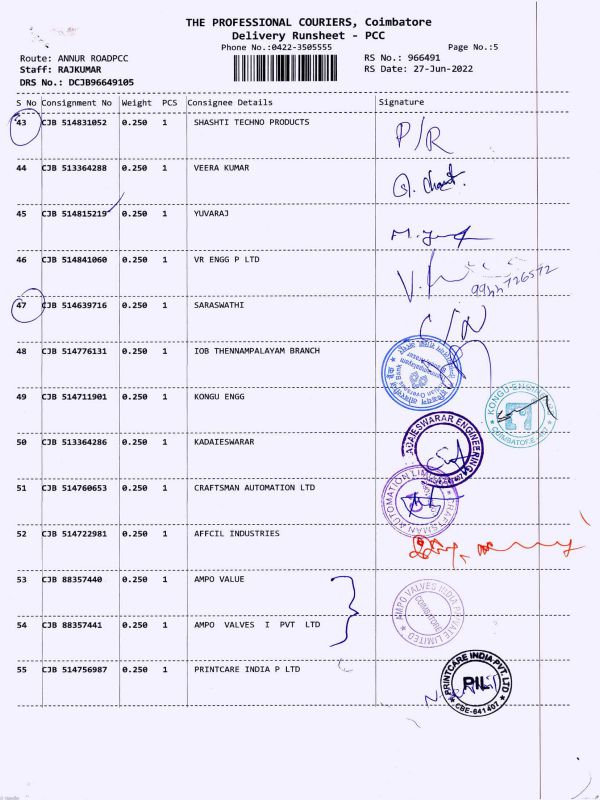 THE PROFESSIONAL COURIERS, Coimbatore
Delivery Runsheet - PCC
Phone No.:0422-3505555
Page No.:5
Route: ANNUR ROADPCC
RS No.: 966491
Staff: RAJKUMAR
RS Date: 27-Jun-2022
DRS No.: DCJB96649105
S No Consignment No Weight PCS Consignee Details Signature
43 CJB 514831052 0.250 1 SHASHTI TECHNO PRODUCTS P/R
44 CJB 513364288 0.250 1 VEERA KUMAR
45 CJB 514815219 0.250 1 YUVARAJ
46 CJB 514841060 0.250 1 VR ENGG P LTD
47 CJB 514639716 0.250 1 SARASWATHI
48 CJB 514776131 0.250 1 IOB THENNAMPALAYAM BRANCH
49 CJB 514711901 0.250 1 KONGU ENGG
50 CJB 513364286 0.250 1 KADAIESWARAR
51 CJB 514760653 0.250 1 CRAFTSMAN AUTOMATION LTD
CRAFTSMAN AUTOMATION LIMITED
52 CJB 514722981 0.250 1 AFFCIL INDUSTRIES
53 CJB 88357440 0.250 1 AMPO VALUE
54 CJB 88357441 0.250 1 AMPO VALVES I PVT LTD
AMPO VALVES INDIA PRIVATE LIMITED
COIMBATORE
55 CJB 514756987 0.250 1 PRINTCARE INDIA P LTD
PRINTCARE INDIA PVT. LTD
PIL
CBE-641407